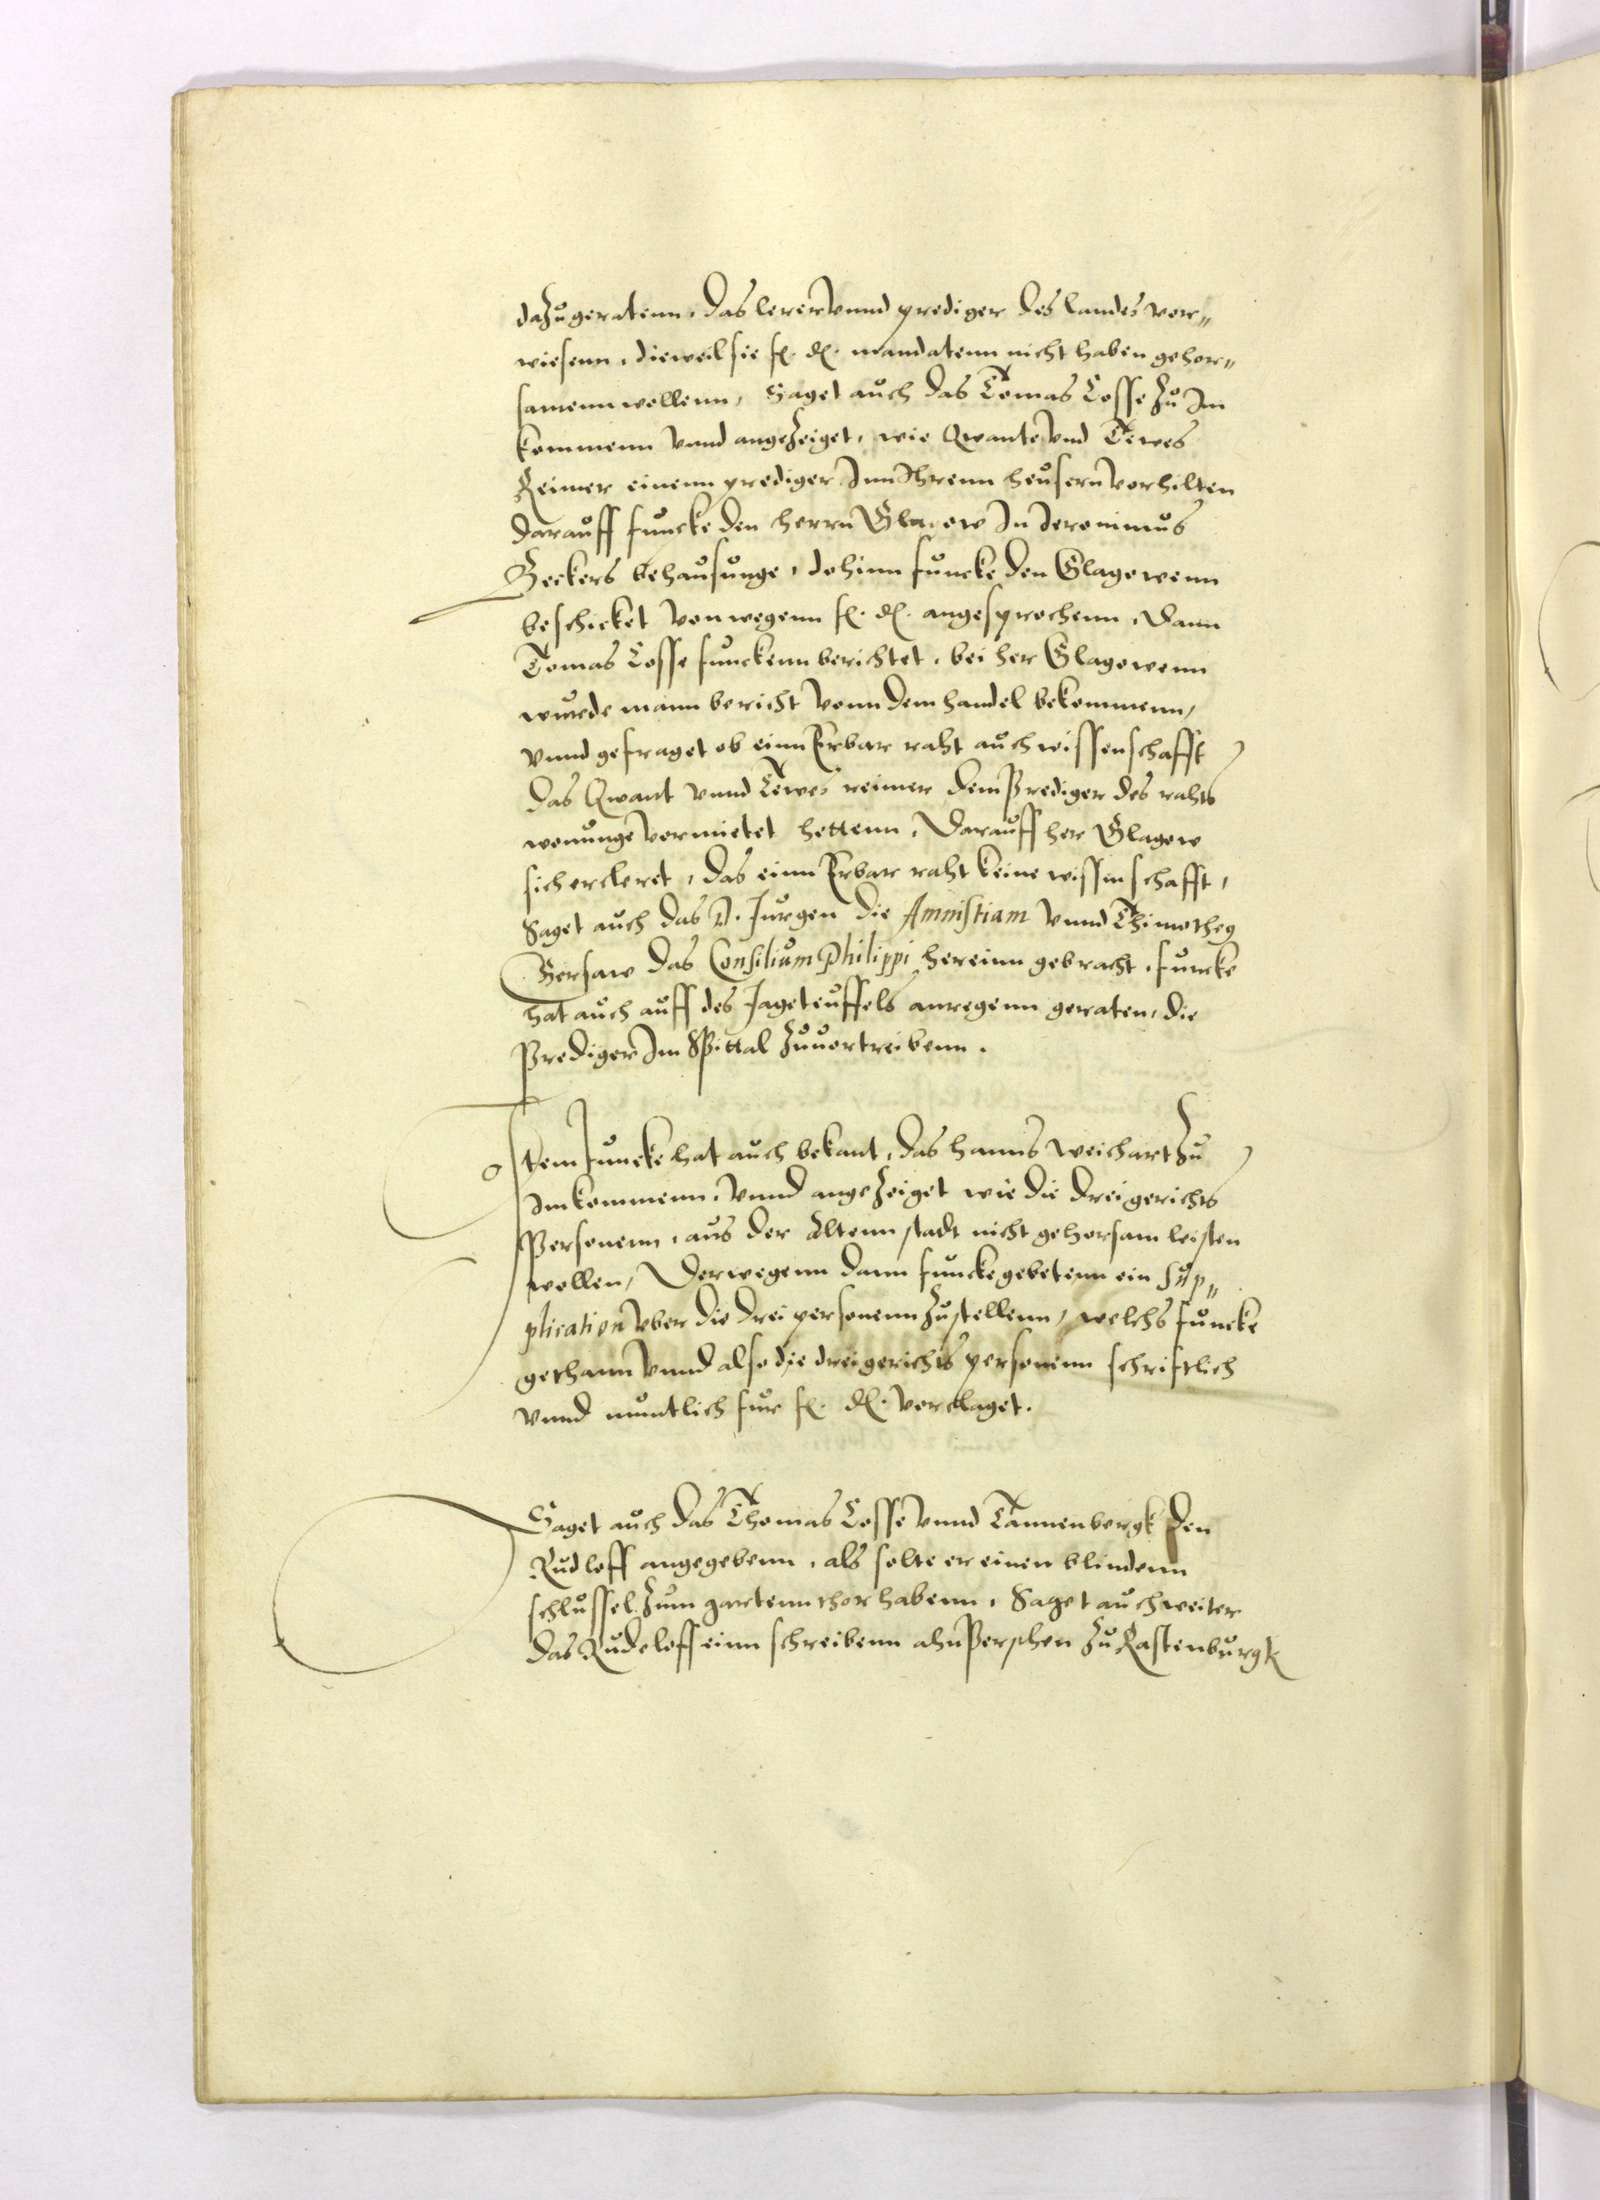 dazu geratenn, das lerer vnnd prediger des landes ver„
wiesenn, dieweil sie f. d. mandatenn nicht haben gehor„
samenn wollenn, Saget auch das Tomas Cosse zu Im
kommenn vnnd angezeiget, wie Qwante vnd Tewes
Reimer einenn prediger Inn Ihrenn heusern vorhilten
darauff funcke den herrn Glagow In Ieronimus
Beckers behausunge, dohinn funcke den Glagowenn
beschicket von wegenn f. d. angesprochenn, Dann
Tomas Cosse funckenn berichtet, bei her Glagowenn
wurde mann bericht vonn dem handel bekommenn,
vnnd gefraget ob einn Erbar raht auch wissenschafft
das Qwant vnnd Tewes reimer dem Prediger des rahts
wonunge vermietet hettenn, Darauff her Glagow
sich ercleret, das einn Erbar raht keine wissinschafft,
Saget auch das D. Jurgen die Amnistiam vnnd Thimotheg
Gersaw das Consilium Philippi hereinn gebracht, funcke
hat auch auff des Jageteuffels anregenn geraten, die
Prediger Im Spittal zuuortreibenn.
Item Funcke hat auch bekant, das hanns weichart zu
Im kommenn, vnnd angezeiget wie die drei gerichts
Personenn, aus der Altenn stadt nicht gehorsam leisten
wollen, Derwegenn dann funcke gebetenn ein Sup„
plication vber die drei personenn zustellenn, welchs funcke
gethann vnnd also die drei gerichts personenn schriftlich
vnnd muntlich fur f. d. verclaget.
Saget auch das Thomas Cosse vnnd Tannenbergk den
Rudloff angegebenn, als solte er einen blindenn
schlussel zum gartenn thor habenn, Saget auch weiter
das Rudeloff einn schreibenn ahn Perschen zu Rastenburgk